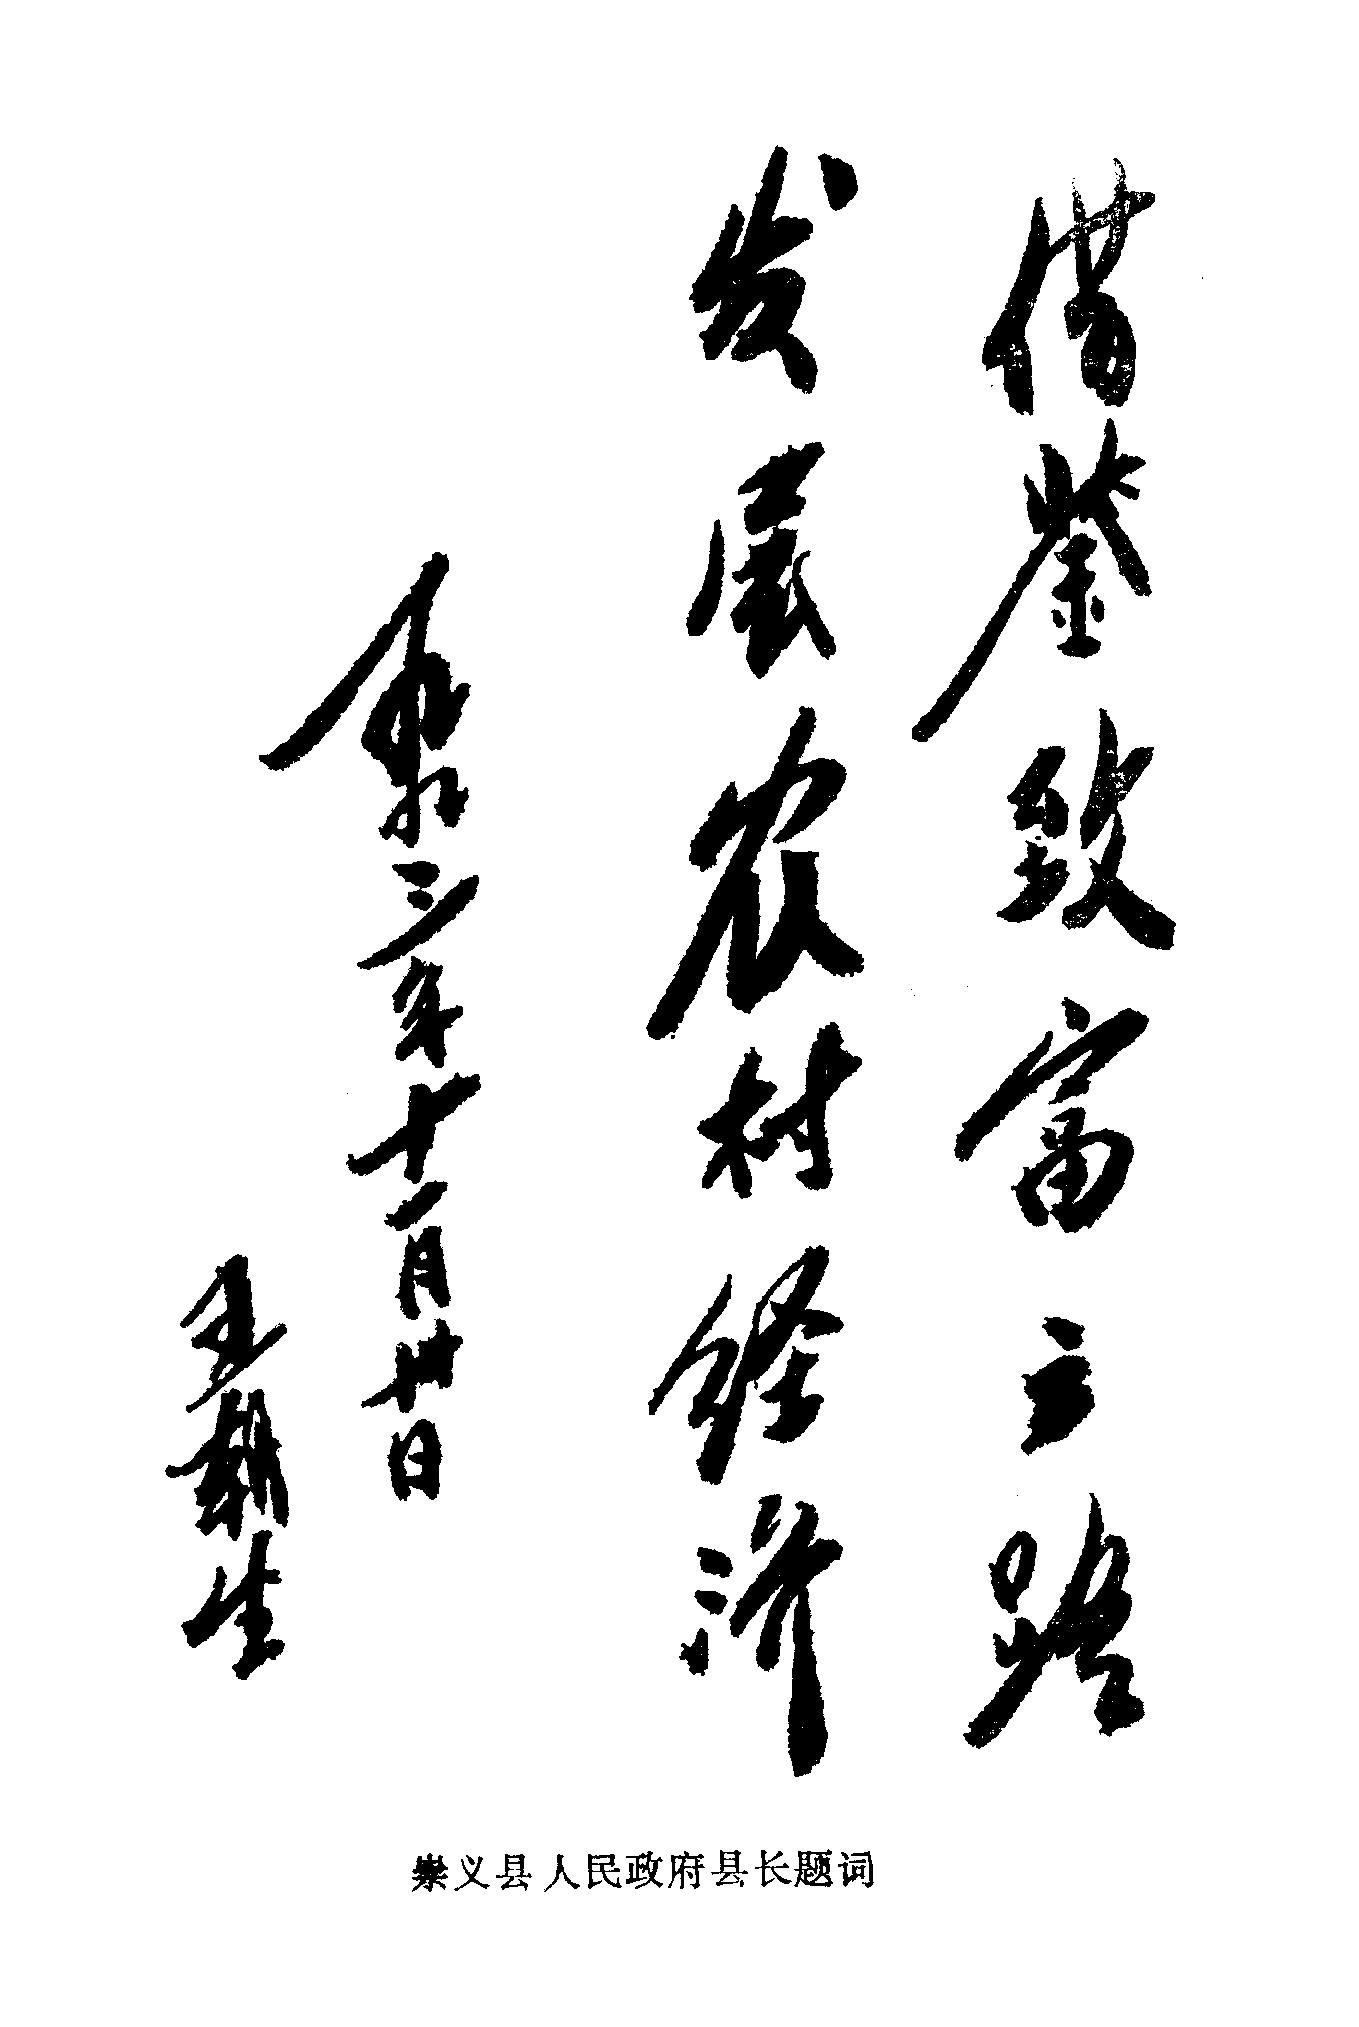 借鉴致富之路
发展农村经济
三年十一月卅日
王朝生
崇义县人民政府县长题词